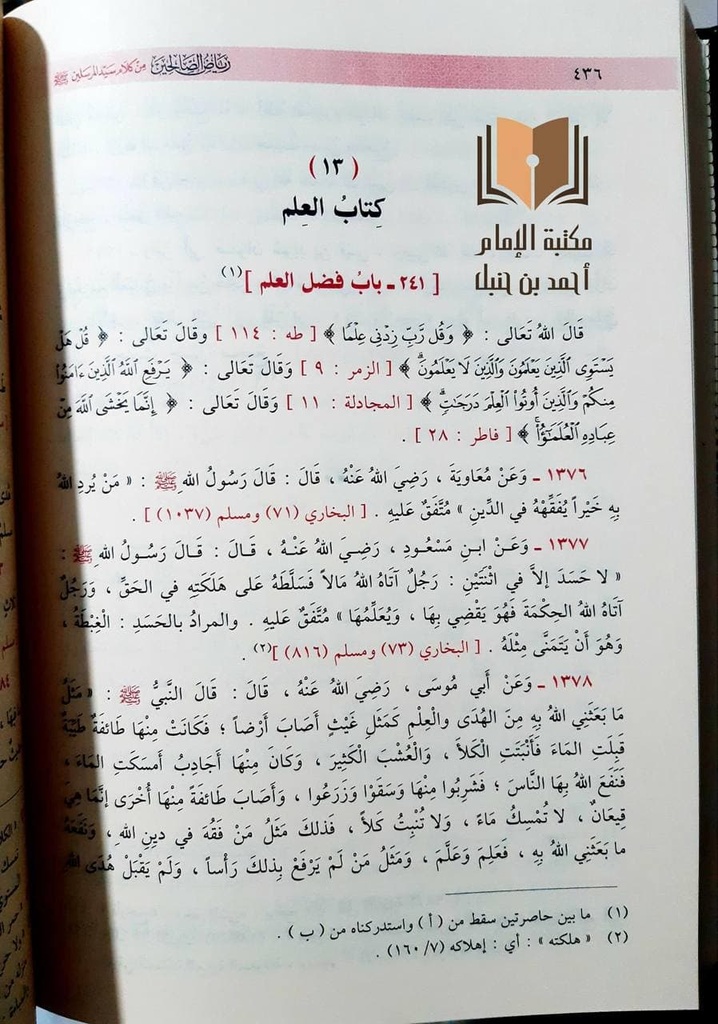 رياض الصالحين من كلام سيد المرسلين ﷺ
٤٣٦
مكتبة الإمام
أحمد بن حنبل
( ١٣ )
كِتابُ العِلم
[ ٢٤١ ـ بابُ فضل العلم ](١)
قَالَ اللهُ تَعَالى : ﴿ وَقُل رَّبِّ زِدْنِي عِلْمًا ﴾ [ طه : ١١٤ ] وقَالَ تَعَالى : ﴿ قُلْ هَلْ
يَسْتَوِي الَّذِينَ يَعْلَمُونَ وَالَّذِينَ لَا يَعْلَمُونَ ﴾ [ الزمر : ٩ ] وَقَالَ تَعَالى : ﴿ يَرْفَعِ اللَّهُ الَّذِينَ ءَامَنُوا
مِنكُمْ وَالَّذِينَ أُوتُوا الْعِلْمَ دَرَجَاتٍ ﴾ [ المجادلة : ١١ ] وَقَالَ تَعَالى : ﴿ إِنَّمَا يَخْشَى اللَّهَ مِنْ
عِبَادِهِ الْعُلَمَاءُ ﴾ [ فاطر : ٢٨ ] .
١٣٧٦ ـ وَعَنْ مُعَاوِيَةَ ، رَضِيَ اللهُ عَنْهُ ، قَالَ : قَالَ رَسُولُ اللهِ ﷺ : « مَنْ يُرِدِ اللهُ
بِهِ خَيْراً يُفَقِّهْهُ في الدِّينِ » مُتَّفَقٌ عَليهِ . [ البخاري (٧١) ومسلم (١٠٣٧) ] .
١٣٧٧ ـ وَعَنْ ابنِ مَسْعُودٍ ، رَضِيَ اللهُ عَنْـهُ ، قَـالَ : قَـالَ رَسُولُ اللهِ ﷺ :
« لا حَسَدَ إلاَّ في اثْنَتَيْنِ : رَجُلٌ آتَاهُ اللهُ مَالاً فَسَلَّطَهُ عَلى هَلَكَتِهِ في الحَقِّ ، وَرَجُلٌ
آتَاهُ اللهُ الحِكْمَةَ فَهُوَ يَقْضِي بِهَا ، وَيُعَلِّمُهَا » مُتَّفَقٌ عَليهِ . والمرادُ بالحَسَدِ : الغِبْطَةُ ،
وَهُوَ أَنْ يَتَمَنَّى مِثْلَهُ . [ البخاري (٧٣) ومسلم (٨١٦) ](٢) .
١٣٧٨ ـ وَعَنْ أَبي مُوسَى ، رَضِيَ اللهُ عَنْهُ ، قَالَ : قَالَ النَّبيُّ ﷺ : « مَثَلُ
مَا بَعَثَنِي اللهُ بِهِ مِنَ الْهُدَى وَالْعِلْمِ كَمَثَلِ غَيْثٍ أَصَابَ أَرْضاً ؛ فَكَانَتْ مِنْهَا طَائفَةٌ طَيِّبَةٌ
قَبِلَتِ المَاءَ فَأَنْبَتَتِ الْكَلأَ ، وَالْعُشْبَ الْكَثِيرَ ، وَكَانَ مِنْهَا أَجَادِبُ أَمسَكَتِ المَاءَ ،
فَنَفَعَ اللهُ بِهَا النَّاسَ ؛ فَشَرِبُوا مِنْهَا وَسَقَوْا وَزَرَعُوا ، وَأَصَابَ طَائفَةً مِنْهَا أُخْرَى إنَّمَا هِيَ
قِيعَانٌ ، لا تُمْسِكُ مَاءً ، وَلا تُنْبِتُ كَلأً ، فَذلكَ مَثَلُ مَنْ فَقُهَ في دينِ اللهِ ، وَنَفَعَهُ
ما بَعَثَنِي اللهُ بِهِ ، فَعَلِمَ وَعَلَّمَ ، وَمَثَلُ مَنْ لَمْ يَرْفَعْ بِذلكَ رَأْساً ، وَلَمْ يَقْبَلْ هُدَى اللهِ
(١) ما بين حاصرتين سقط من ( أ ) واستدركناه من ( ب ) .
(٢) « هلكته » : أي : إهلاكه (٧/ ١٦٠) .